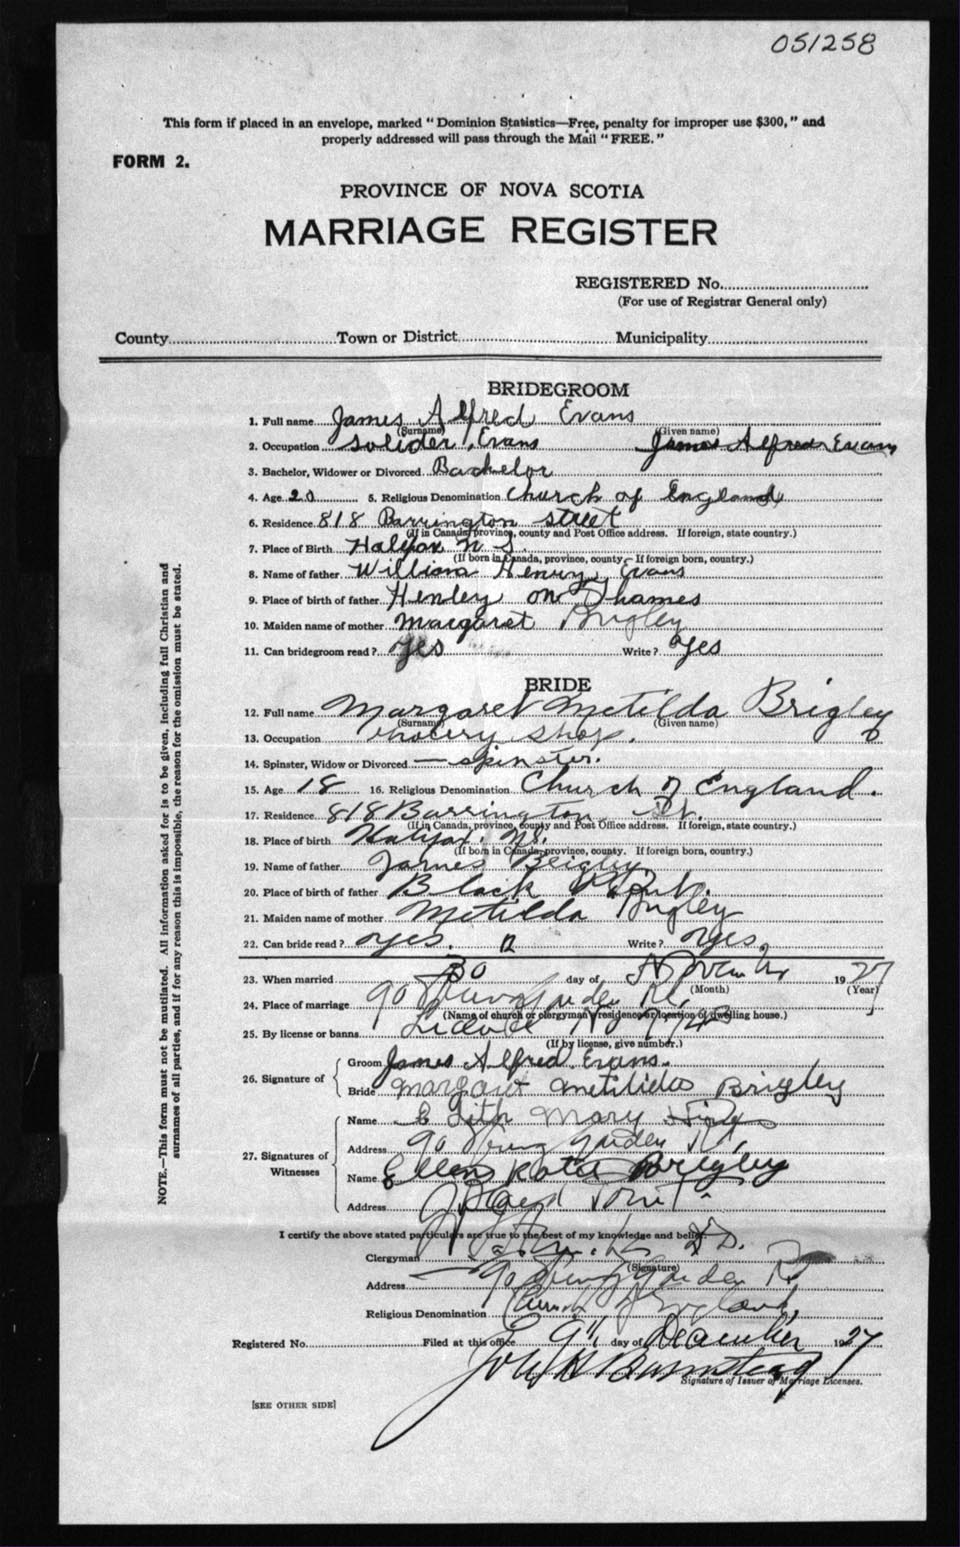 051258
This form if placed in an envelope, marked "Dominion Statistics—Free, penalty for improper use $300," and
properly addressed will pass through the Mail "FREE."
FORM 2.
PROVINCE OF NOVA SCOTIA
MARRIAGE REGISTER
REGISTERED No.
(For use of Registrar General only)
County Town or District Municipality
BRIDEGROOM
1. Full name James Alfred Evans
(Surname) (Given name)
2. Occupation Solider, Evans James Alfred Evans
3. Bachelor, Widower or Divorced Bachelor
4. Age 20 5. Religious Denomination Church of England
6. Residence 818 Barrington street
(If in Canada, province, county and Post Office address. If foreign, state country.)
7. Place of Birth Halifax N S.
(If born in Canada, province, county - If foreign born, country.)
8. Name of father William Henry Evans
9. Place of birth of father Henley on Thames
10. Maiden name of mother Margaret Brigley
11. Can bridegroom read? Yes Write? Yes
BRIDE
12. Full name Margaret Metilda Brigley
(Surname) (Given name)
13. Occupation shop.
14. Spinster, Widow or Divorced — spinster.
15. Age 18 16. Religious Denomination Church of England.
17. Residence 818 Barrington St.
(If in Canada, province, county and Post Office address. If foreign, state country.)
18. Place of birth Halifax. NS.
(If born in Canada, province, county. If foreign born, country.)
19. Name of father James Brigley
20. Place of birth of father Black
21. Maiden name of mother Metilda Brigley
22. Can bride read? yes. Write? yes.
23. When married 30 day of November 1927
(Month) (Year)
24. Place of marriage 90 Garden Rd.
(Name of church or clergyman's residence or location of dwelling house.)
25. By license or banns
(If by license, give number.)
26. Signature of Groom James Alfred Evans.
Bride Margaret Metilida Brigley
27. Signatures of Witnesses
Name Edith Mary
Address 90 Spring Garden Rd.
Name Ellen Kate Brigley
Address
I certify the above stated particulars are true to the best of my knowledge and belief.
Clergyman
(Signature)
Address 90 Spring Garden Rd
Religious Denomination Church of England
Registered No. Filed at this office 9th day of December 1927
Signature of Issuer of Marriage Licenses.
[SEE OTHER SIDE]
NOTE.—This form must not be mutilated. All information asked for is to be given, including full Christian and
surnames of all parties, and if for any reason this is impossible, the reason for the omission must be stated.